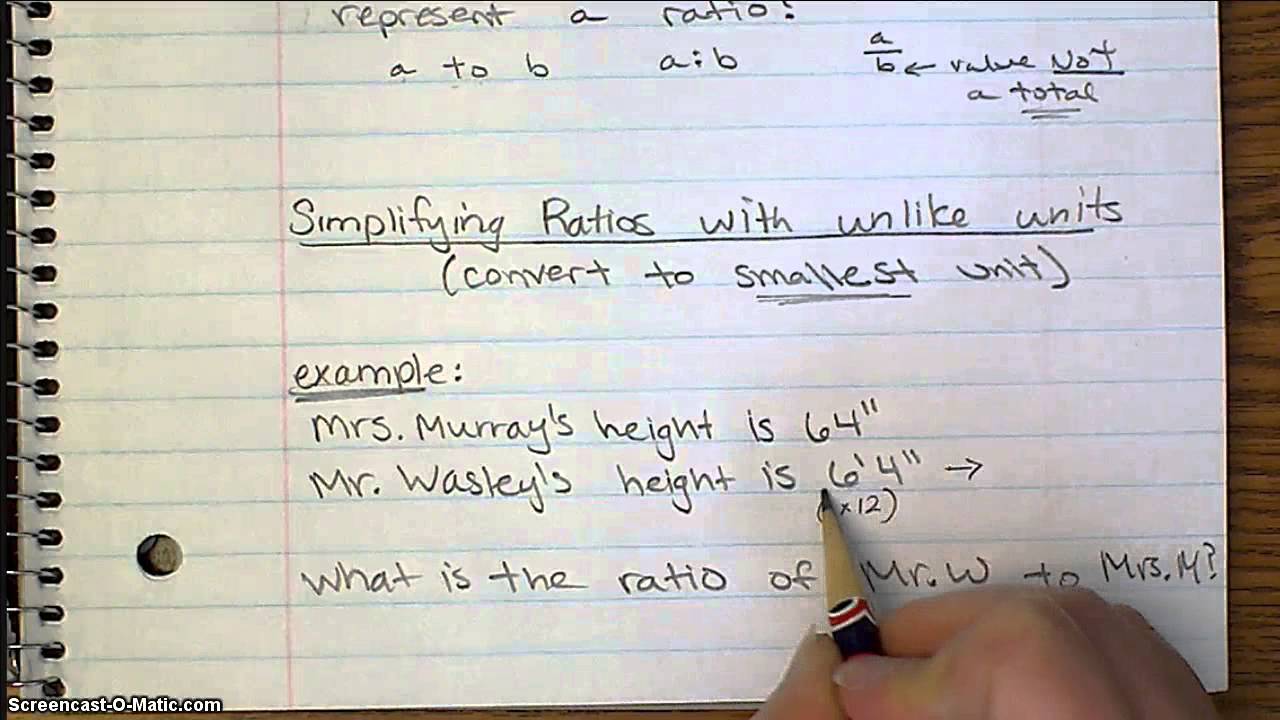 represent a ratio:
a to b    a:b    a/b ← value NOT
a total
Simplifying Ratios with unlike units
(convert to smallest unit)
example:
Mrs. Murray's height is 64"
Mr. Wasley's height is 6'4" →
x12)
What is the ratio of Mr. W to Mrs. M?
Screencast-O-Matic.com